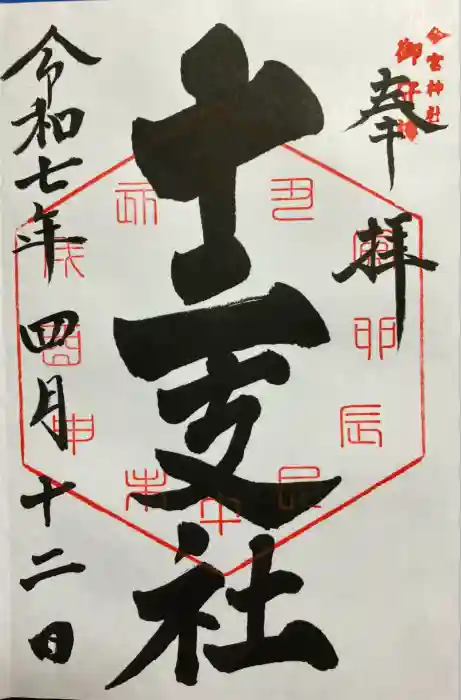 今宮神社
奉拝
十二支社
令和七年四月十二日
丑
寅
卯
辰
巳
午
未
申
酉
戌
亥